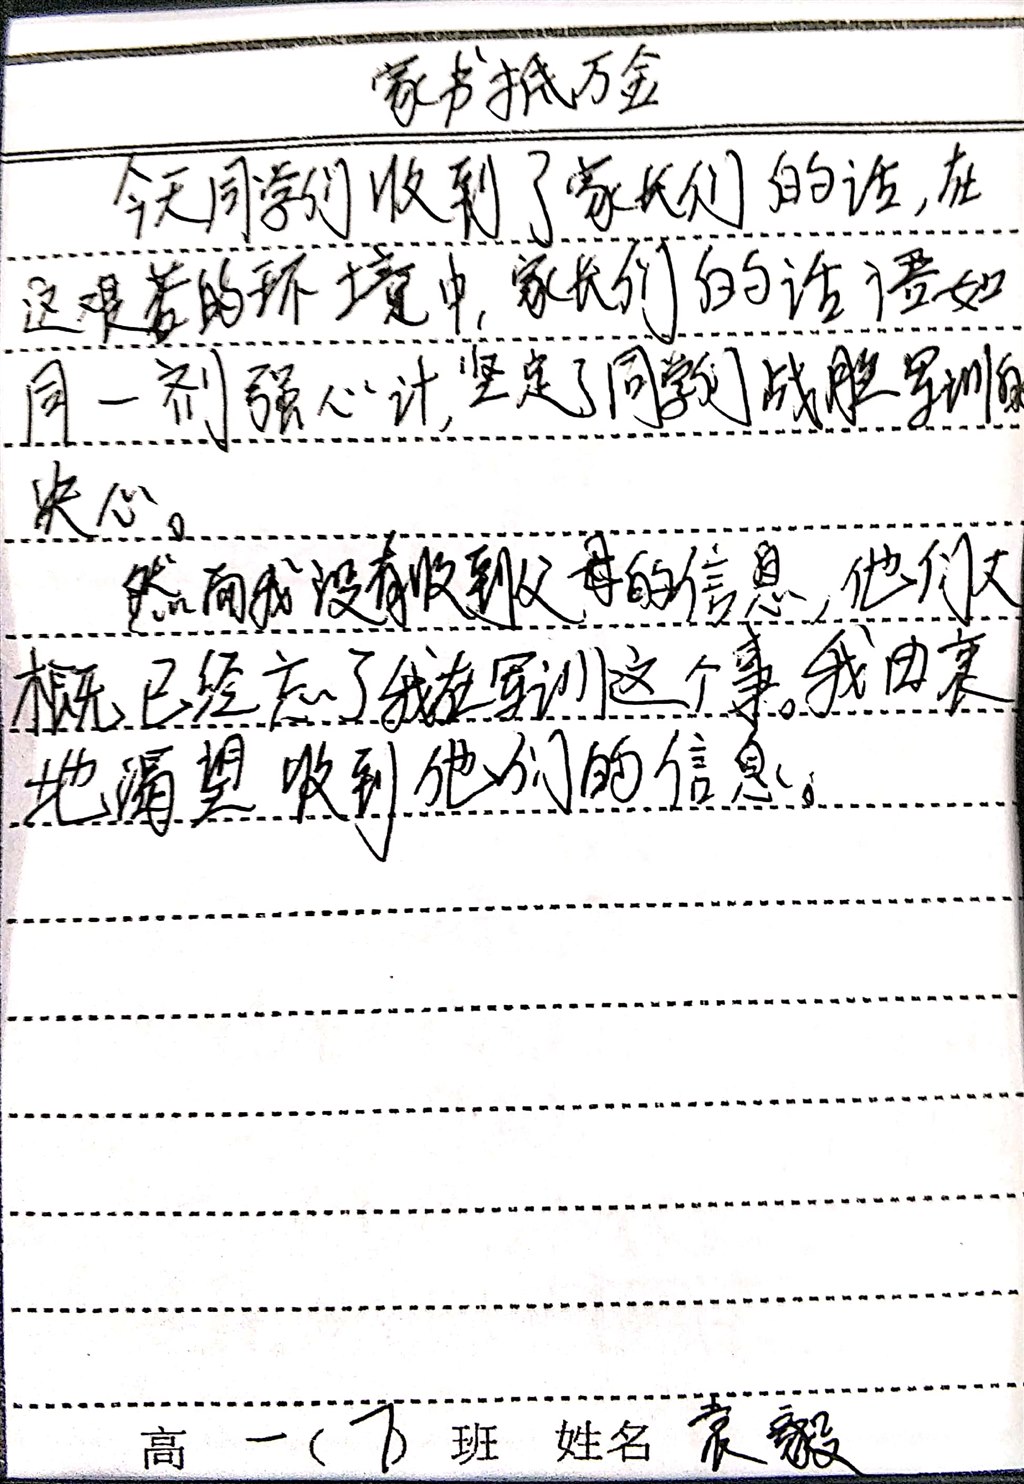 家书抵万金
今天同学们收到了家长们的话,在
这艰苦的环境中,家长们的话语如
同一剂强心计,坚定了同学们战胜军训的
决心。
然而我没有收到父母的信息,他们大
概已经忘了我在军训这个事。我由衷
地渴望收到他们的信息。
高一(7)班 姓名 袁毅